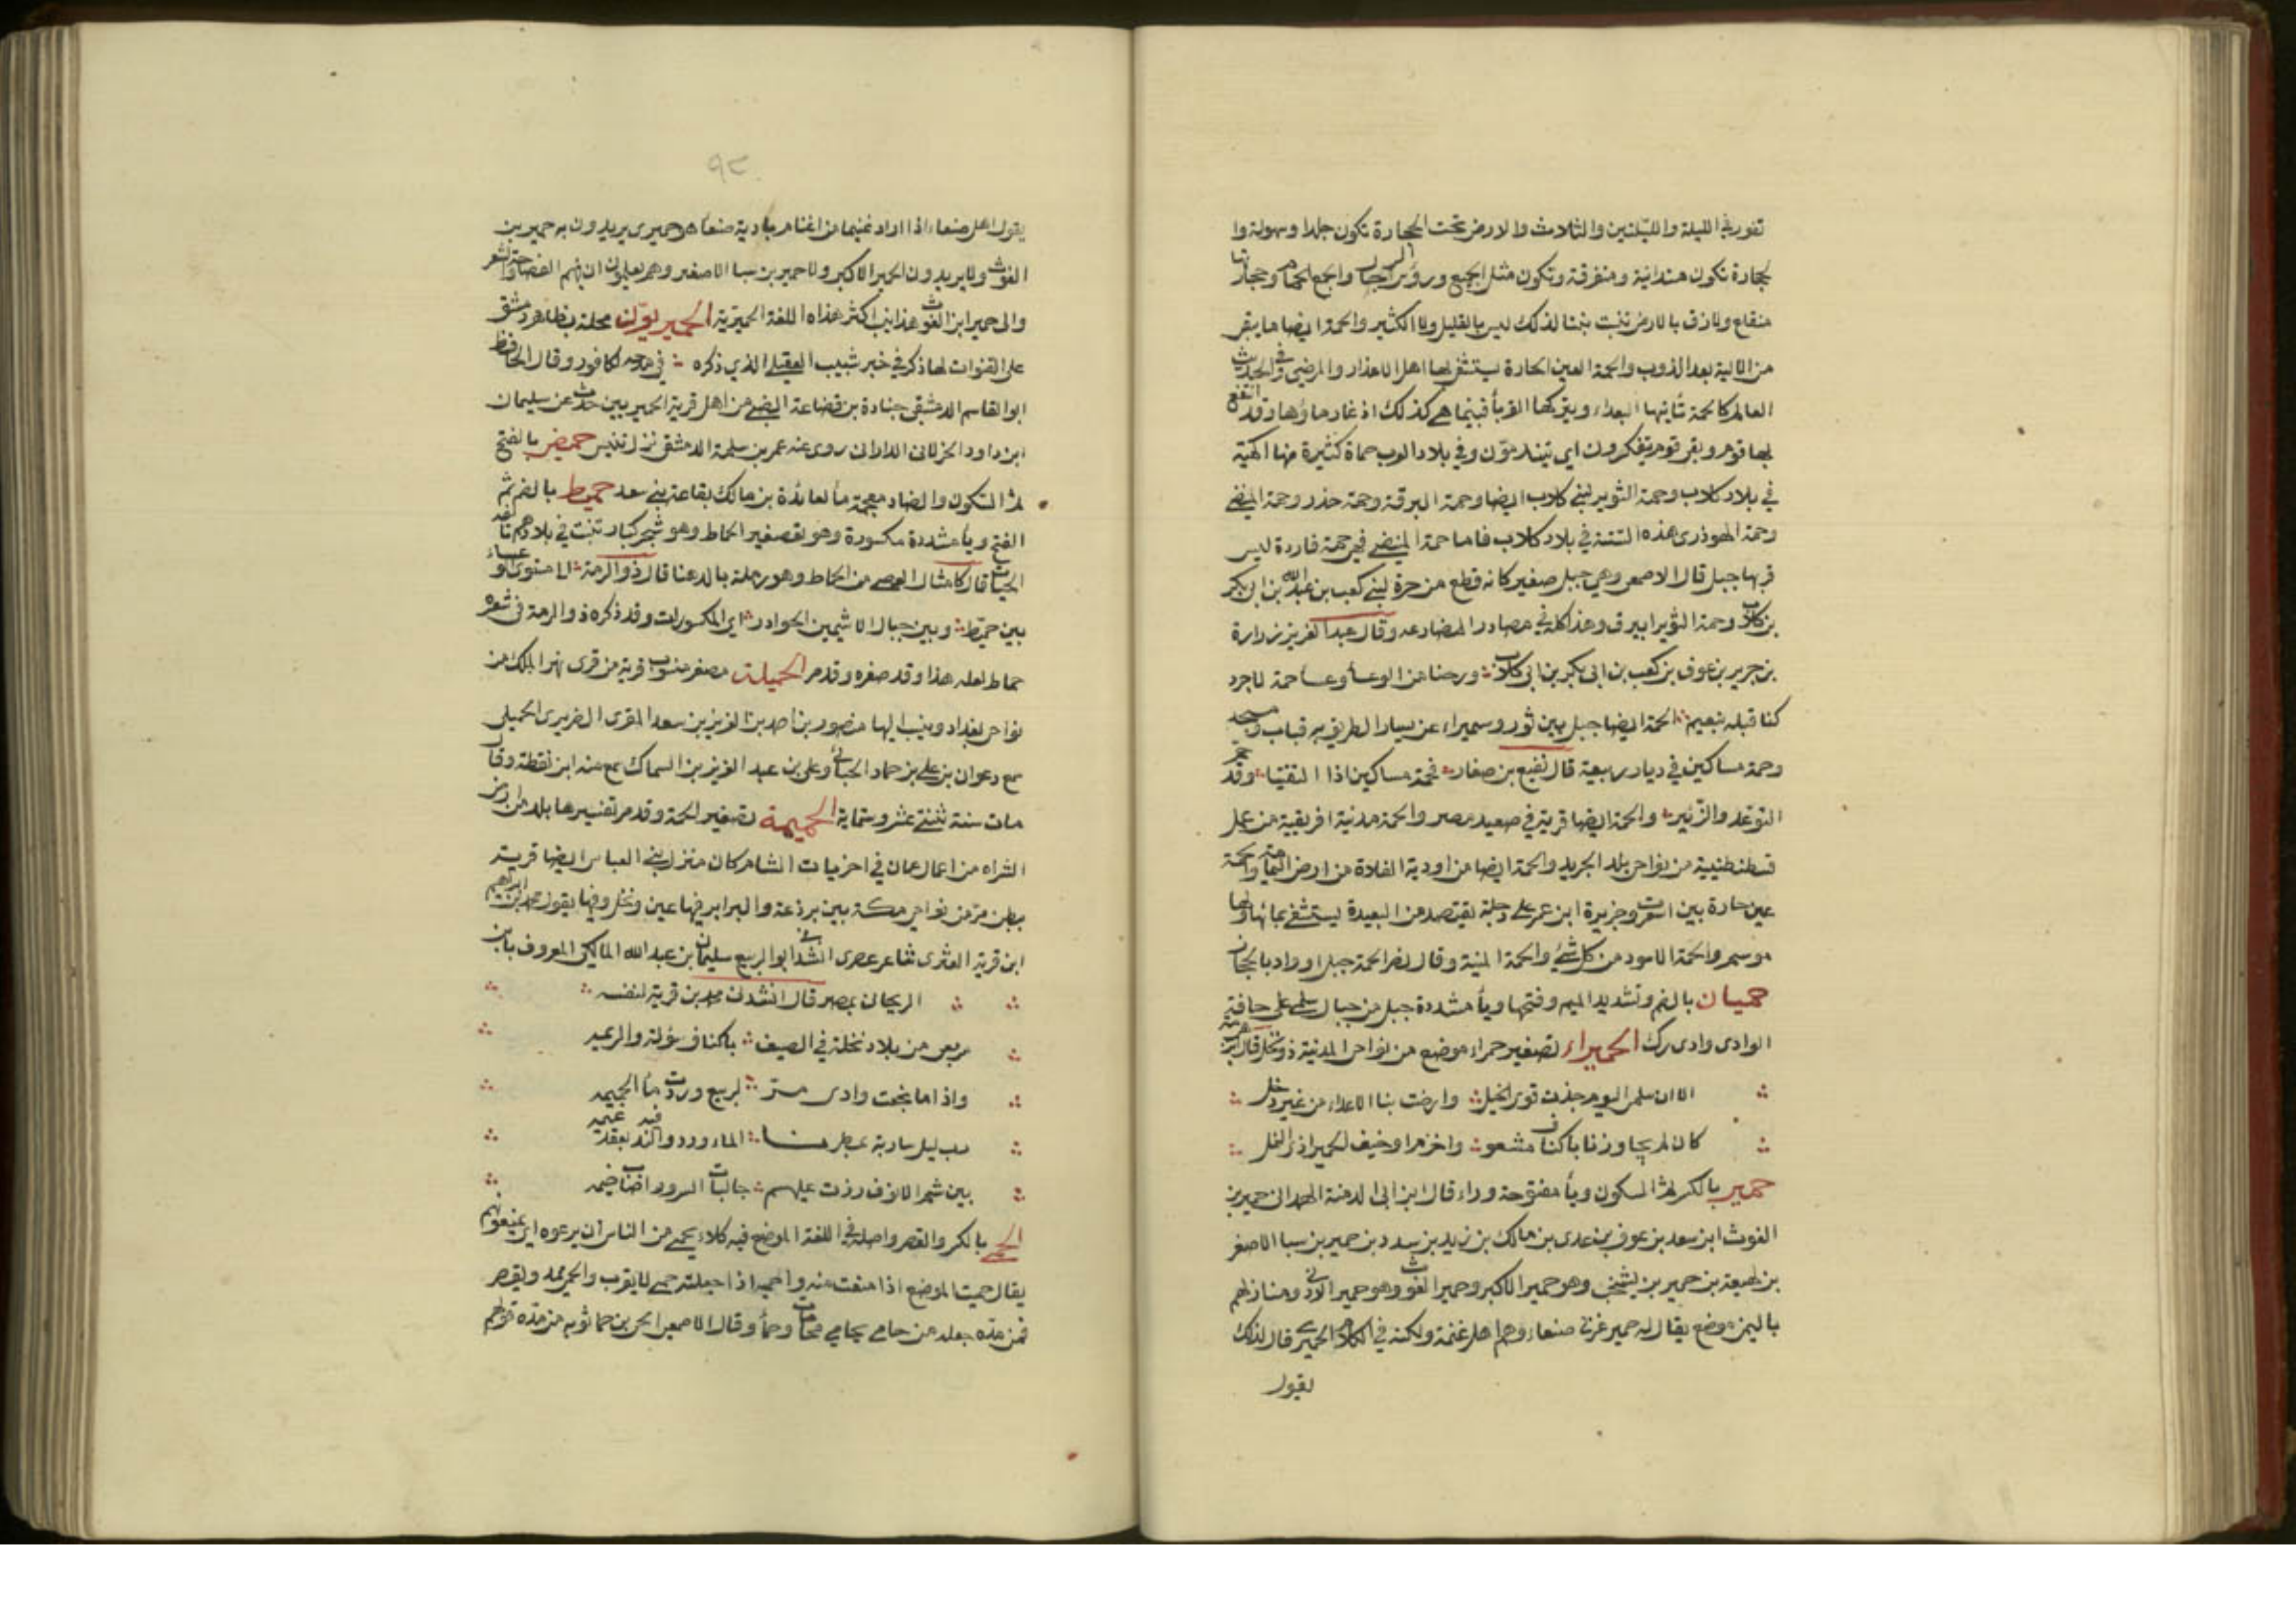 تغور في الليلة والليلتين والثلاث والارض تحت الحجارة تكون جلدا وسهولة وا
لحجارة تكون متدانية ومتفرقة وتكون مثل الجمع ورؤس الرجال والجمع الحمام وحجارتها
منقلع ولازق بالارض تنبت نبتا لذلك ليس بالقليل ولا الكثير والحمة ايضا ما يبقى
من الالية بعد الذوب والحمة العين الحارة يستشفى بها اهل الاعذار والمرضى وفي الحديث
العالم كالحمة تأتيها البعداء ويتركها القربأ فبينما هي كذلك اذ غار ماؤها وقد انتفع
بها قوم وبقي قوم يتفكرون اي يتندمون وفي بلاد العرب حماة كثيرة منها
في بلاد كلاب وحمة الثوير لبني كلاب ايضا وحمة البرقة وحمة خدر وحمة المنضى
وحمة الهوذرى هذه الستة في بلاد كلاب فاما حمة المنضى فهى حمة فاردة ليس
قربها جبل قال الاصمعى وهي جبل صغير كانه قطع من حرة لبني كعب بن عبدالله بن ابى بكر
بن كلاب وحمة الثوير ابيرق وهذا كله في مصادر المضاجعه وقال عبد العزيز بن زرارة
بن جرير بن عوف بن كعب بن ابى بكر بن ابى كلاب ورحنا من الوعسأ وعسأ حمة لاجرد
كنا قبله بنعيم الحمة ايضا جبل بين ثور وسميراء عن يسار الطريق به قباب ومسجد
وحمة مساكين في ديار ربيعة قال نفيع بن صفار فحمة مساكين اذا التقينا وقد
التوعد والزئير والحمة ايضا قرية في صعيد مصر والحمة مدنية افريقية من عمل
قسطنطنيية من نواحى بلد الجريد والحمة ايضا من اودية الفلاة من ارض اليمامة والحمة
عين حارة بين اسعرت وجزيرة ابن عمر على دجلة تقتصد من البعيدة ليستشفى بمائها ولها
موسم والحمة الاسود من كل شئ والحمة المنية وقال نصر الحمة جبل او واد بالحجاز
حميان بالضم وتشديد الميم وفتحها ويأ مشددة جبل من جبال سلمى على حافتى
الوادى وادى ركك الحميراء تصغير حمراء موضع من نواحى المدنية ذو نخل قال ابن هرمة
الا ان سلمى اليوم جذت قوى الحبل وارضت بنا الاعداء من غير ذحل
كان لم يجاوزنا باكناف مشعر واخزم او خيف الحميرا ذى النخل
حمير بالكسر ثم السكون ويأ مفتوحة وراء قال ابن ابى الدمنة الهمدانى حمير بن
الغوث ابن سعد بن عوف بن عدى بن مالك بن زيد بن سدد بن حمير بن سبا الاصغر
بن لهيعة بن حمير بن يشجب وهو حمير الاكبر وحمير الغوث وهو حمير الادنى ومنازلهم
باليمن موضع يقال له حمير غربى صنعاء وهم اهل غتمة ولكنة في الكلام الحميرى قال لذلك
يقول
٩٢
يقول اهل صنعاء اذا اراد غنيما من اغنام بادية صنعا هو حميرى يريدون به حمير بن
الغوث ولا يريدون الحمير الاكبر ولا حمير بن سبا الاصغر وهم يعلمون ان فيهم الفصاحة والشعر
والى حمير ابن الغوث هذا ينسب اكثر هذه اللغة الحميرية الحميريون محلة بظاهر دمشق
على القنوات لها ذكر في خبر شبيب العقيلى الذي ذكره في مدحه لكافور وقال الحافظ
ابو القاسم الدمشقى جنادة بن قضاعة الضبى من اهل قرية الحميريين حدث عن سليمان
ابن داود الخولانى الدارانى روى عنه عمر بن سلمة الدمشقى نزل تنيس حميض بالفتح
ثم السكون والضاد معجمة مأ لعائذة بن مالك بقاعة بنى سعد حميط بالضم ثم
الفتح ويأ مشددة مكسورة وهو تصغير الحماط وهو شجر كبار تنبت في بلادهم تألفه
الحيات قال كامثال العصى من الحماط وهو رملة بالدهنا قال ذو الرمة الى مستوى
بين حميط وبين جبال الاشيمين الحوادر اي المكسورات وقد ذكره ذو الرمة في شعره
حماط لعله هذا وقد صغره وقد مر الحميلة مصغر منسوب قرية من قرى نهر الملك من
نواحى بغداد وينسب اليها منصور بن احمد بن العزيز بن سعد المقرى الضريرى الحميلى
سمع دعوان بن على بن حماد الجبائى وعلى بن عبد العزيز بن السماك سمع منه ابن نقطة وقال
مات سنة ثنتى عشر وستماية الحميمة تصغير الحمة وقد مر تفسيرها بلد من ارض
الشراه من اعمال عمان في اخريات الشام كان منزل بنى العباس ايضا قرية
ببطن مر من نواحى مكة بين برذعة والبرابر فيها عين ونخل وفيها يقول محمد بن ابراهيم
ابن قرية العثرى شاعر عصرى انشدنى ابو الربيع سليمان بن عبد الله المالكى المعروف بابن
الريحان بمصر قال انشدنى محمد بن قرية لنفسه
مربعى من بلاد نخلة في الصيف باكناف سؤلة والزميه
واذا ما نجعت وادى مر لربيع وردت مأ الحميمه
رب ليل سارية عطر منا الماء ورد والند يعقد فيه غيمه
بين شم الانوف رزت عليهم جالبات السرور اخبا خيمه
الحمى بالكسر والقصر واصله في اللغة الموضع فيه كلاء يحمى من الناس ان يرعوه اي يمنعونهم
يقال حميت الموضع اذا منعت منه واحميه اذا جعلته حمى لا يقرب والحمى يمد ويقصر
فمن مده جعله من حامى يحامى محاماة وحمأ وقال الاصمعى الحر بن حما ثوبه من مده قولهم